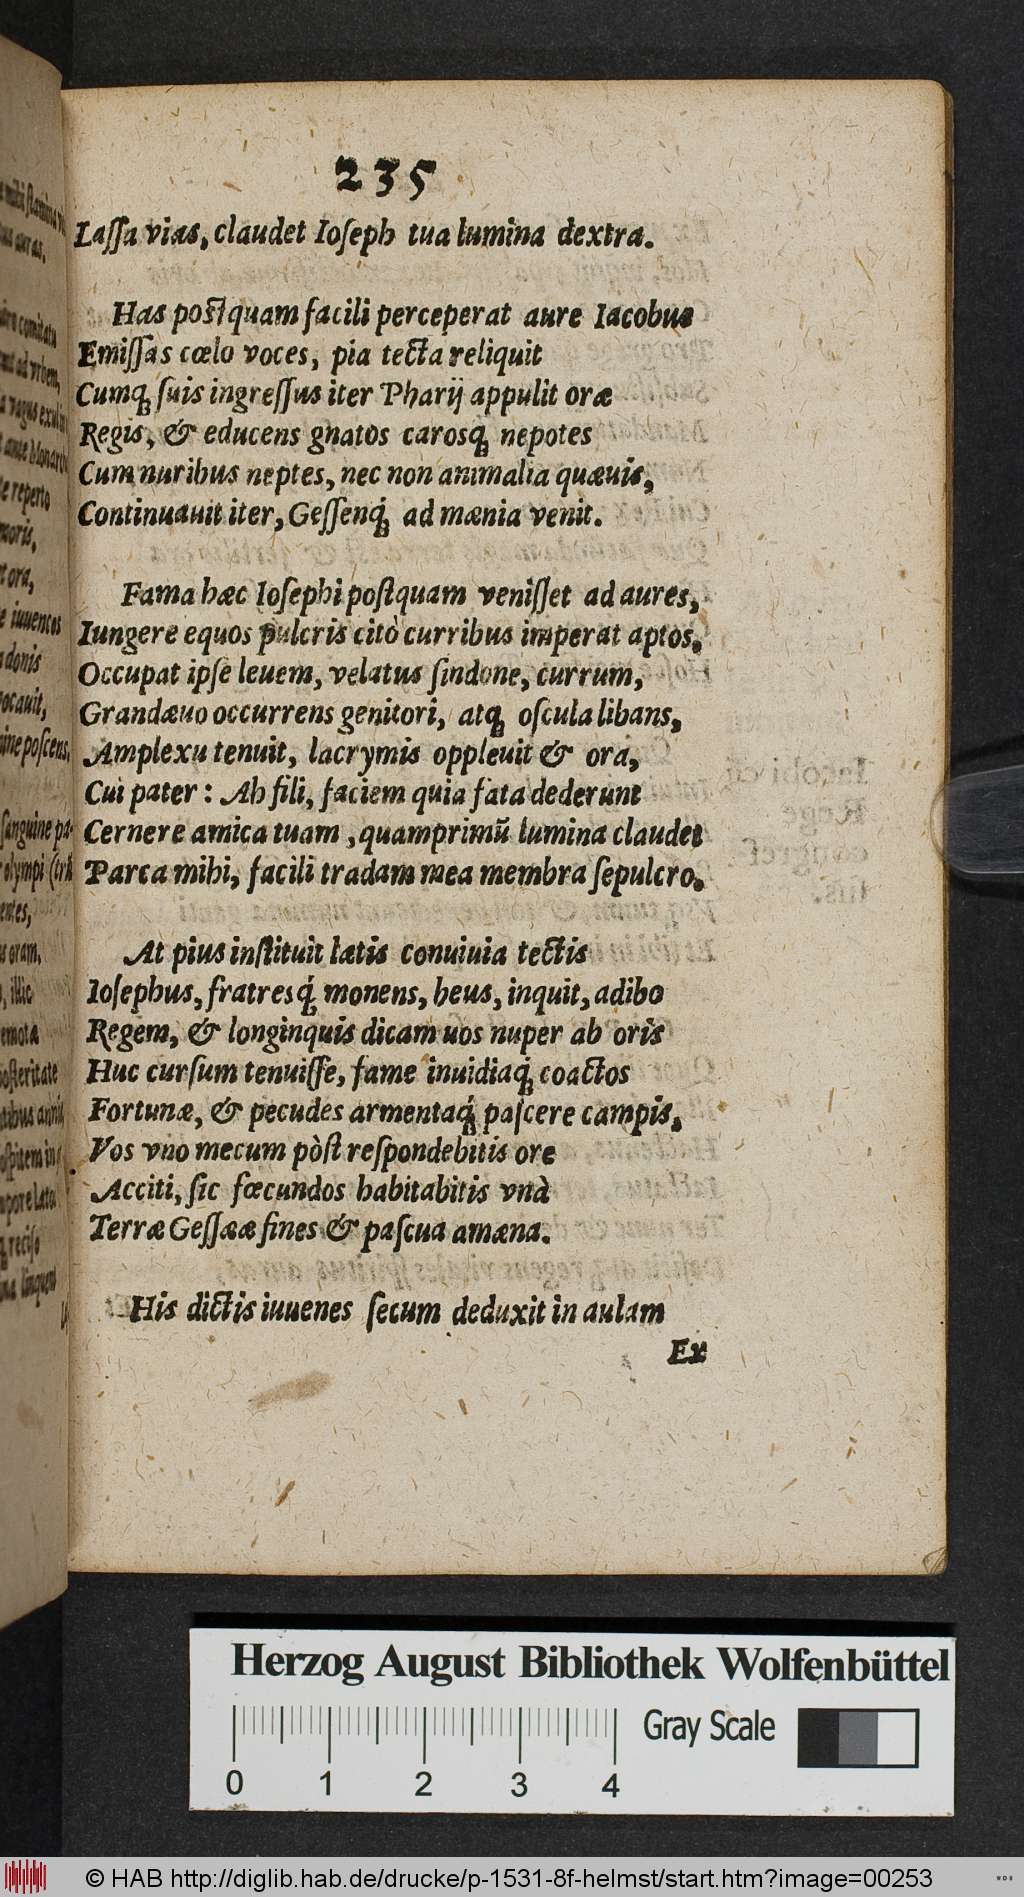 235
Laſſa vias, claudet Ioſeph tua lumina dextra.
Has poſtquam facili perceperat aure Iacobus
Emiſſas cœlo voces, pia tecta reliquit
Cumq́; ſuis ingreſſus iter Pharij appulit oræ
Regis, & educens gnatos carosq́; nepotes
Cum nuribus neptes, nec non animalia quævis,
Continuauit iter, Geſſenq́; ad mœnia venit.
Fama hæc Ioſephi poſtquam veniſſet ad aures,
Iungere equos pulcris citò curribus imperat aptos,
Occupat ipſe leuem, velatus ſindone, currum,
Grandæuo occurrens genitori, atq; oſcula libans,
Amplexu tenuit, lacrymis oppleuit & ora,
Cui pater: Ah fili, faciem quia fata dederunt
Cernere amica tuam, quamprimũ lumina claudet
Parca mihi, facili tradam mea membra ſepulcro.
At pius inſtituit lætis conuiuia tectis
Ioſephus, fratresq́; monens, heus, inquit, adibo
Regem, & longinquis dicam uos nuper ab oris
Huc curſum tenuiſſe, fame inuidiaq́; coactos
Fortunæ, & pecudes armentaq́; paſcere campis,
Vos vno mecum pòſt reſpondebitis ore
Acciti, ſic fœcundos habitabitis vnà
Terræ Geſſææ fines & paſcua amœna.
His dictis iuuenes ſecum deduxit in aulam
Ex
Herzog August Bibliothek Wolfenbüttel
Gray Scale
0 1 2 3 4
© HAB http://diglib.hab.de/drucke/p-1531-8f-helmst/start.htm?image=00253